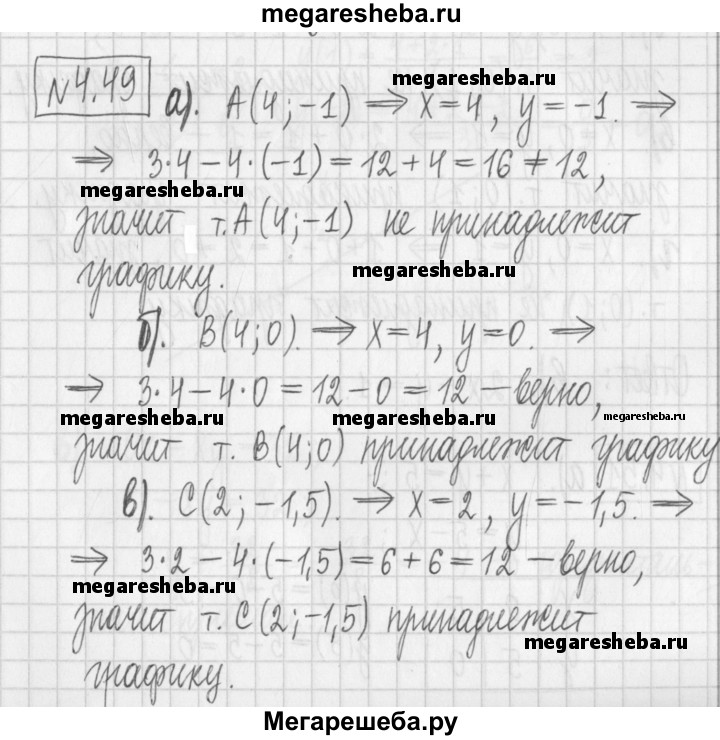 megaresheba.ru
№4.49 а). A(4;-1) ⟹ x=4, y=-1. ⟹
megaresheba.ru
⟹ 3·4-4·(-1)=12+4=16≠12,
megaresheba.ru
значит т.A(4;-1) не принадлежит
графику.
megaresheba.ru
б). B(4;0). ⟹ x=4, y=0. ⟹
⟹ 3·4-4·0=12-0=12-верно,
megaresheba.ru megaresheba.ru megaresheba.ru
значит т. B(4;0) принадлежит графику
в). C(2;-1,5). ⟹ x=2, y=-1,5. ⟹
⟹ 3·2-4·(-1,5)=6+6=12-верно,
megaresheba.ru
значит т. C(2;-1,5) принадлежит
megaresheba.ru
графику.
Мегарешеба.ру